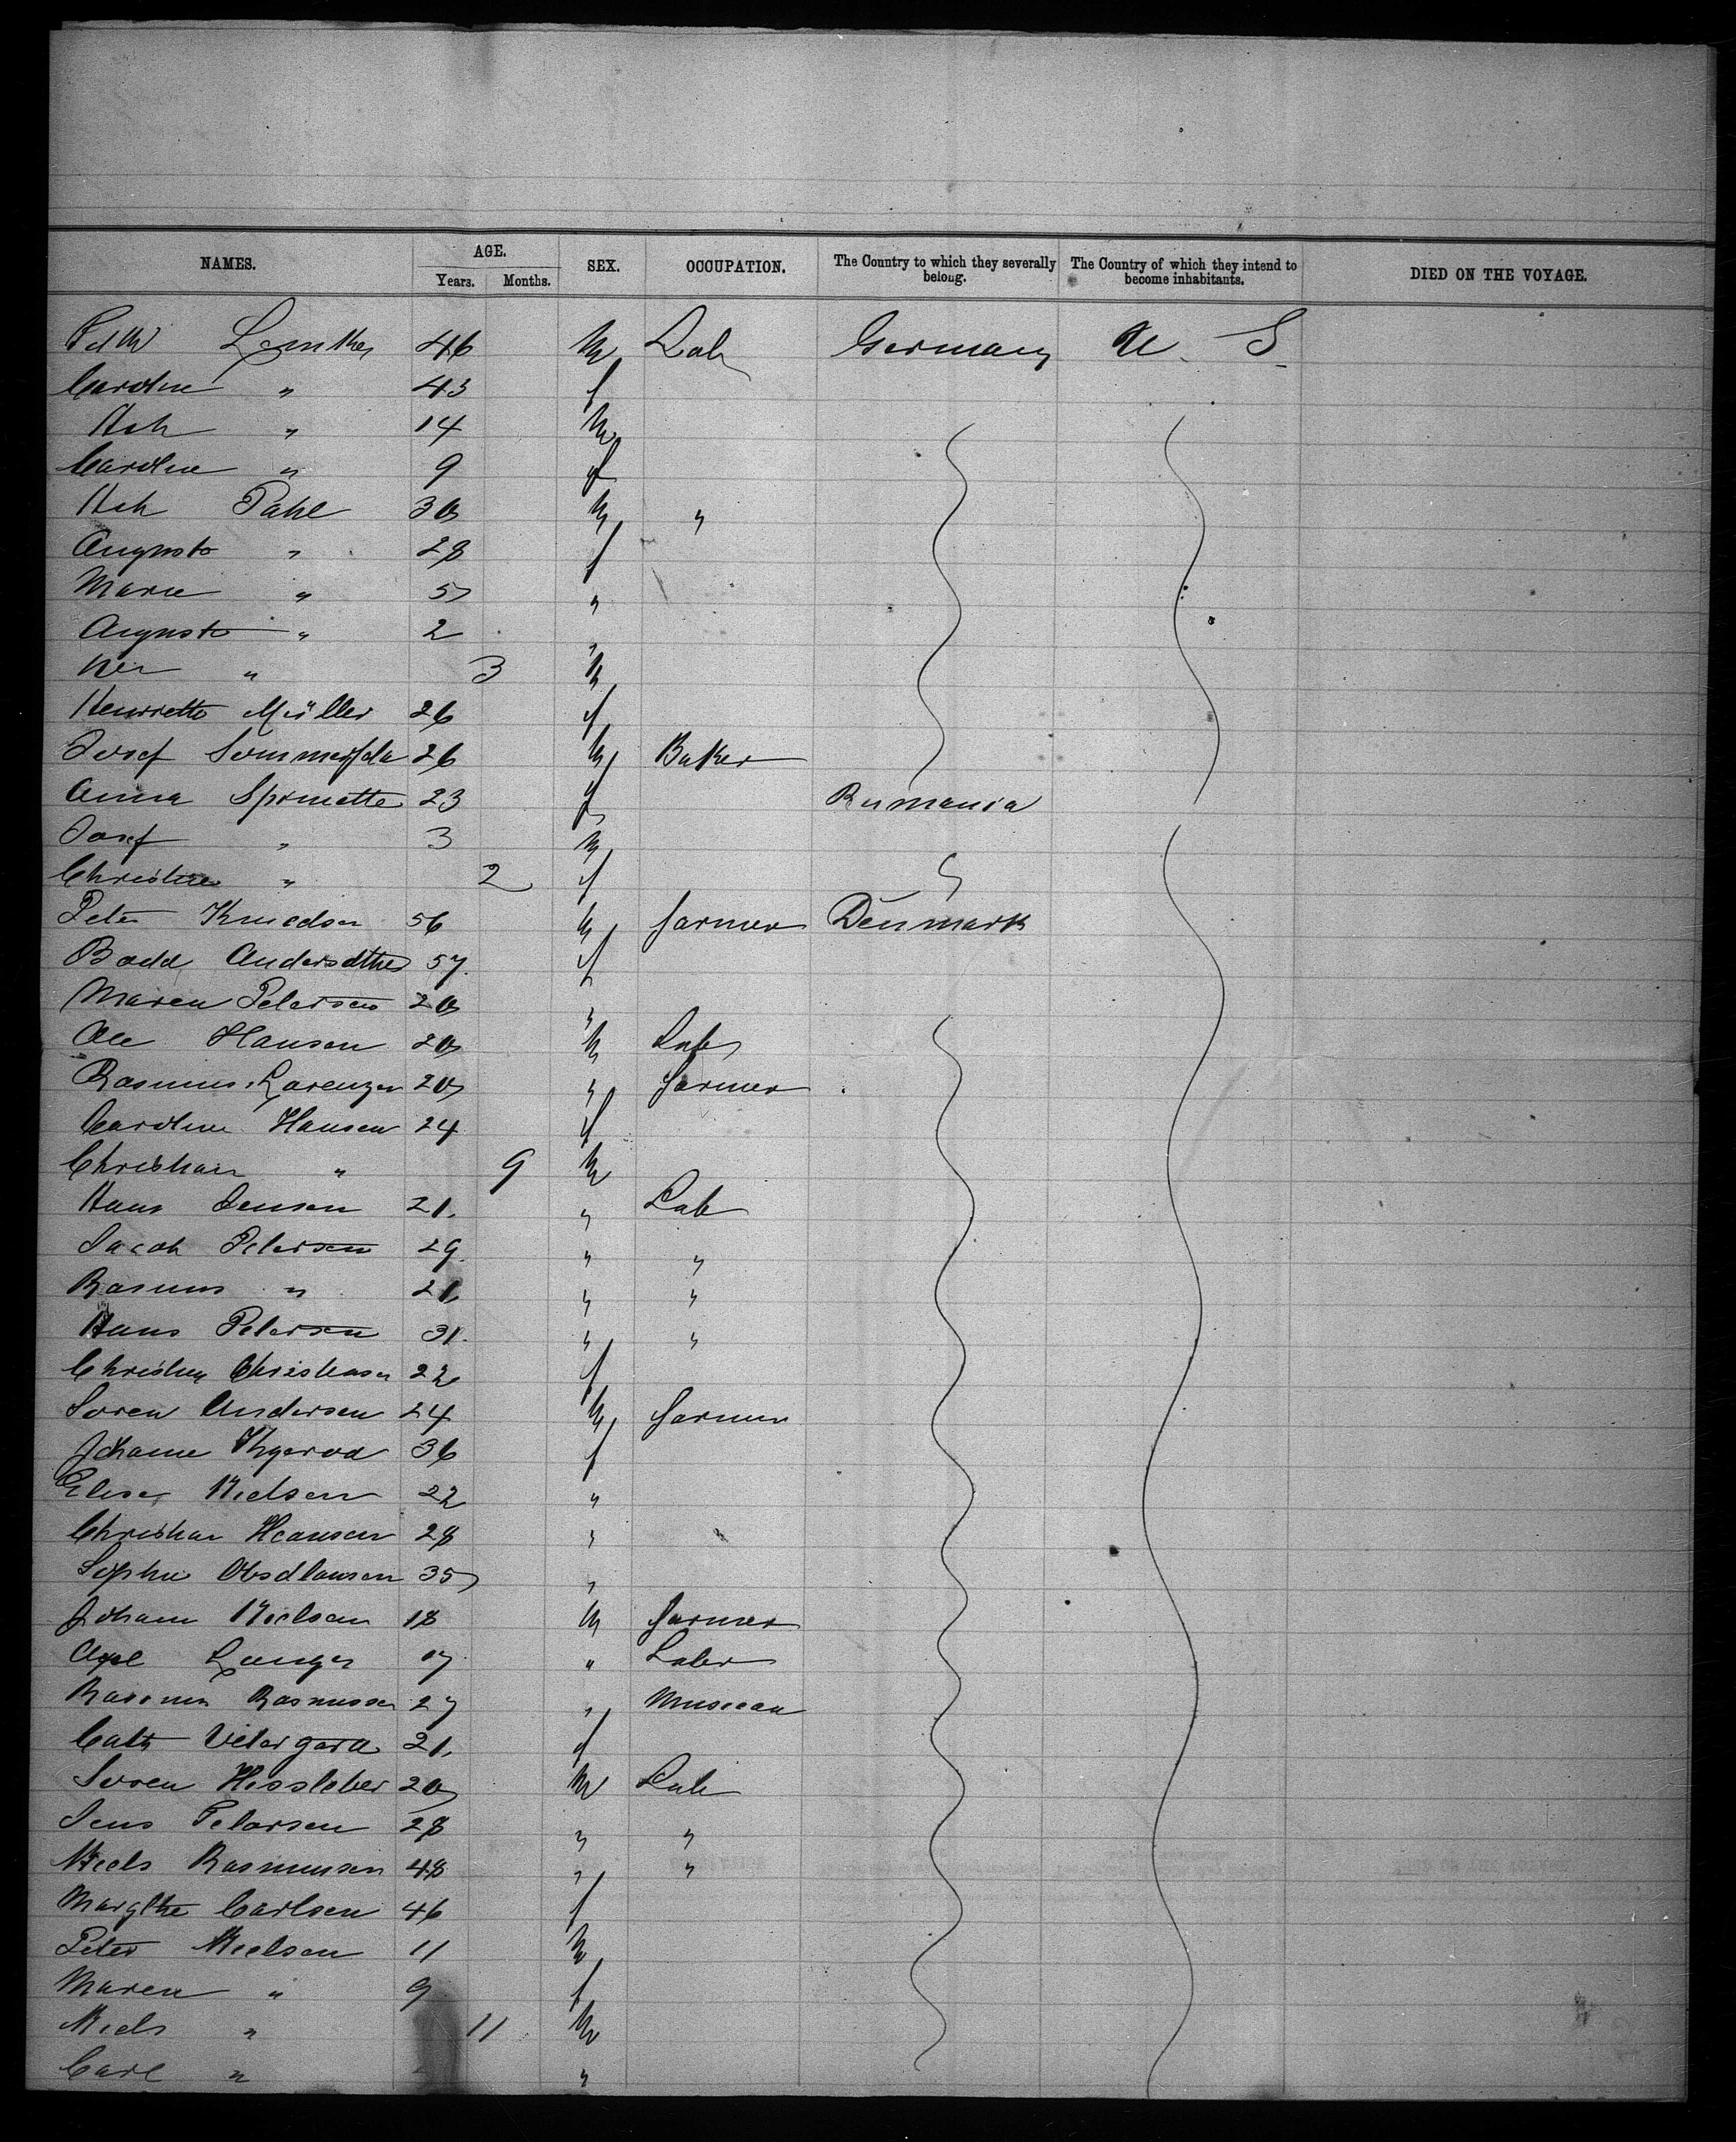 NAMES. AGE. SEX. OCCUPATION. The Country to which they severally belong. The Country of which they intend to become inhabitants. DIED ON THE VOYAGE.
Years. Months.
46 M Lab Germany U. S.
Caroline " 43 f
Hch " 14 M
Caroline " 9 f
Hch Pahl 30 M "
Augusta " 28 f
Marie " 5 "
Augusta " 2 "
" 3 M
Henriette Müller 26 f
Josef 26 M Baker
Anna 23 f Rumania
Josef " 3 M
Christine " 2 f "
Peter Knudsen 56 M farmer Denmark
Bodd Andersdtter 57 f
Maren Petersen 20 "
Ole Hansen 20 M Lab
Rasmus Lorenzen 20 " farmer
Caroline Hansen 24 f
Christian " 9 M
Hans Jensen 21 " Lab
Jacob Petersen 29 " "
Rasmus " 21 " "
Hans Petersen 31 " "
Christine Christensen 22 f
Soren Andersen 24 M farmer
Johanne 36 f
Elise Nielsen 22 "
Christian Hansen 28 "
Sophie 35 "
Johann Nielsen 18 M farmer
Axel Lange 17 " Labor
Rasmus Rasmussen 27 " Musician
Cath 21 f
Soren 20 M Lab
Jens Petersen 28 " "
Niels Rasmussen 48 " "
Margthe Carlsen 46 f
Peter Nielsen 11 M
Maren " 9 f
Niels " 11 M
Carl " "